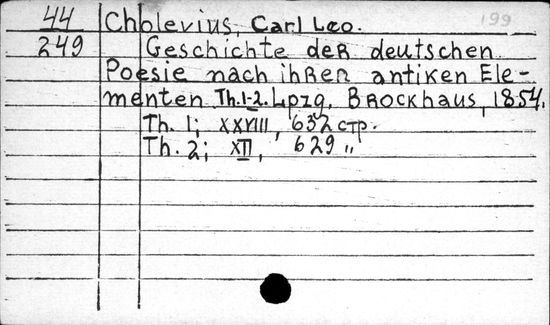 44 Cholevius, Carl Leo. 199
249 Geschichte der deutschen
Poesie nach ihren antiken Ele-
menten Th. 1-2. Lpzg, Brockhaus, 1854.
Th. 1; XXVIII, 632 стр.
Th. 2; XII, 629 "